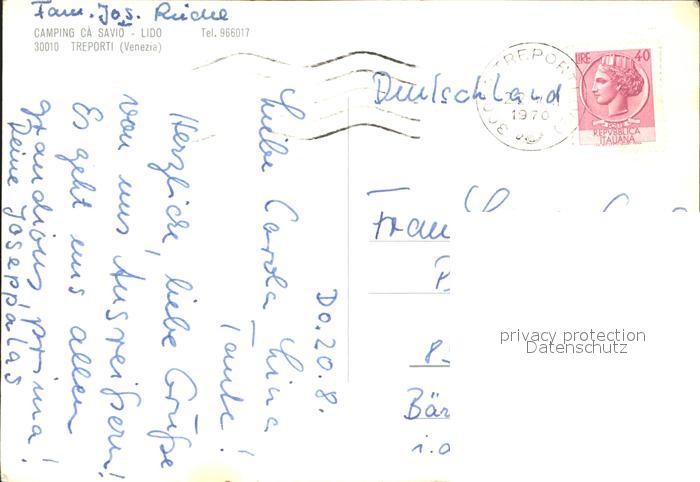 Fam. Jos.
CAMPING CÀ SAVIO - LIDO Tel. 966017
30010 TREPORTI (Venezia)
Do. 20.8.
Liebe Carola Lina
Tante!
Herzliche, liebe Grüße
von uns Ausreißern!
Es geht uns allen
grandios, prima!
Deine
Deutschland
TREPORTI
1970
LIRE 40
POSTE
REPVBBLICA
ITALIANA
Frau
Bär
i. O
privacy protection
Datenschutz